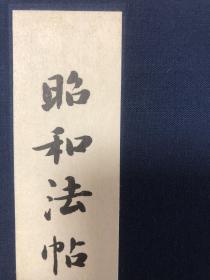 昭和法帖